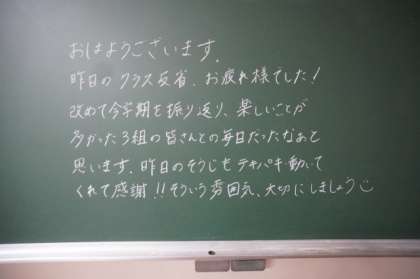 おはようございます.
昨日のクラス反省、お疲れ様でした!
改めて今学期を振り返り、楽しいことが
多かった3組の皆さんとの毎日だったなぁと
思います. 昨日のそうじもテキパキ動いて
くれて感謝!!そういう雰囲気、大切にしましょう☺